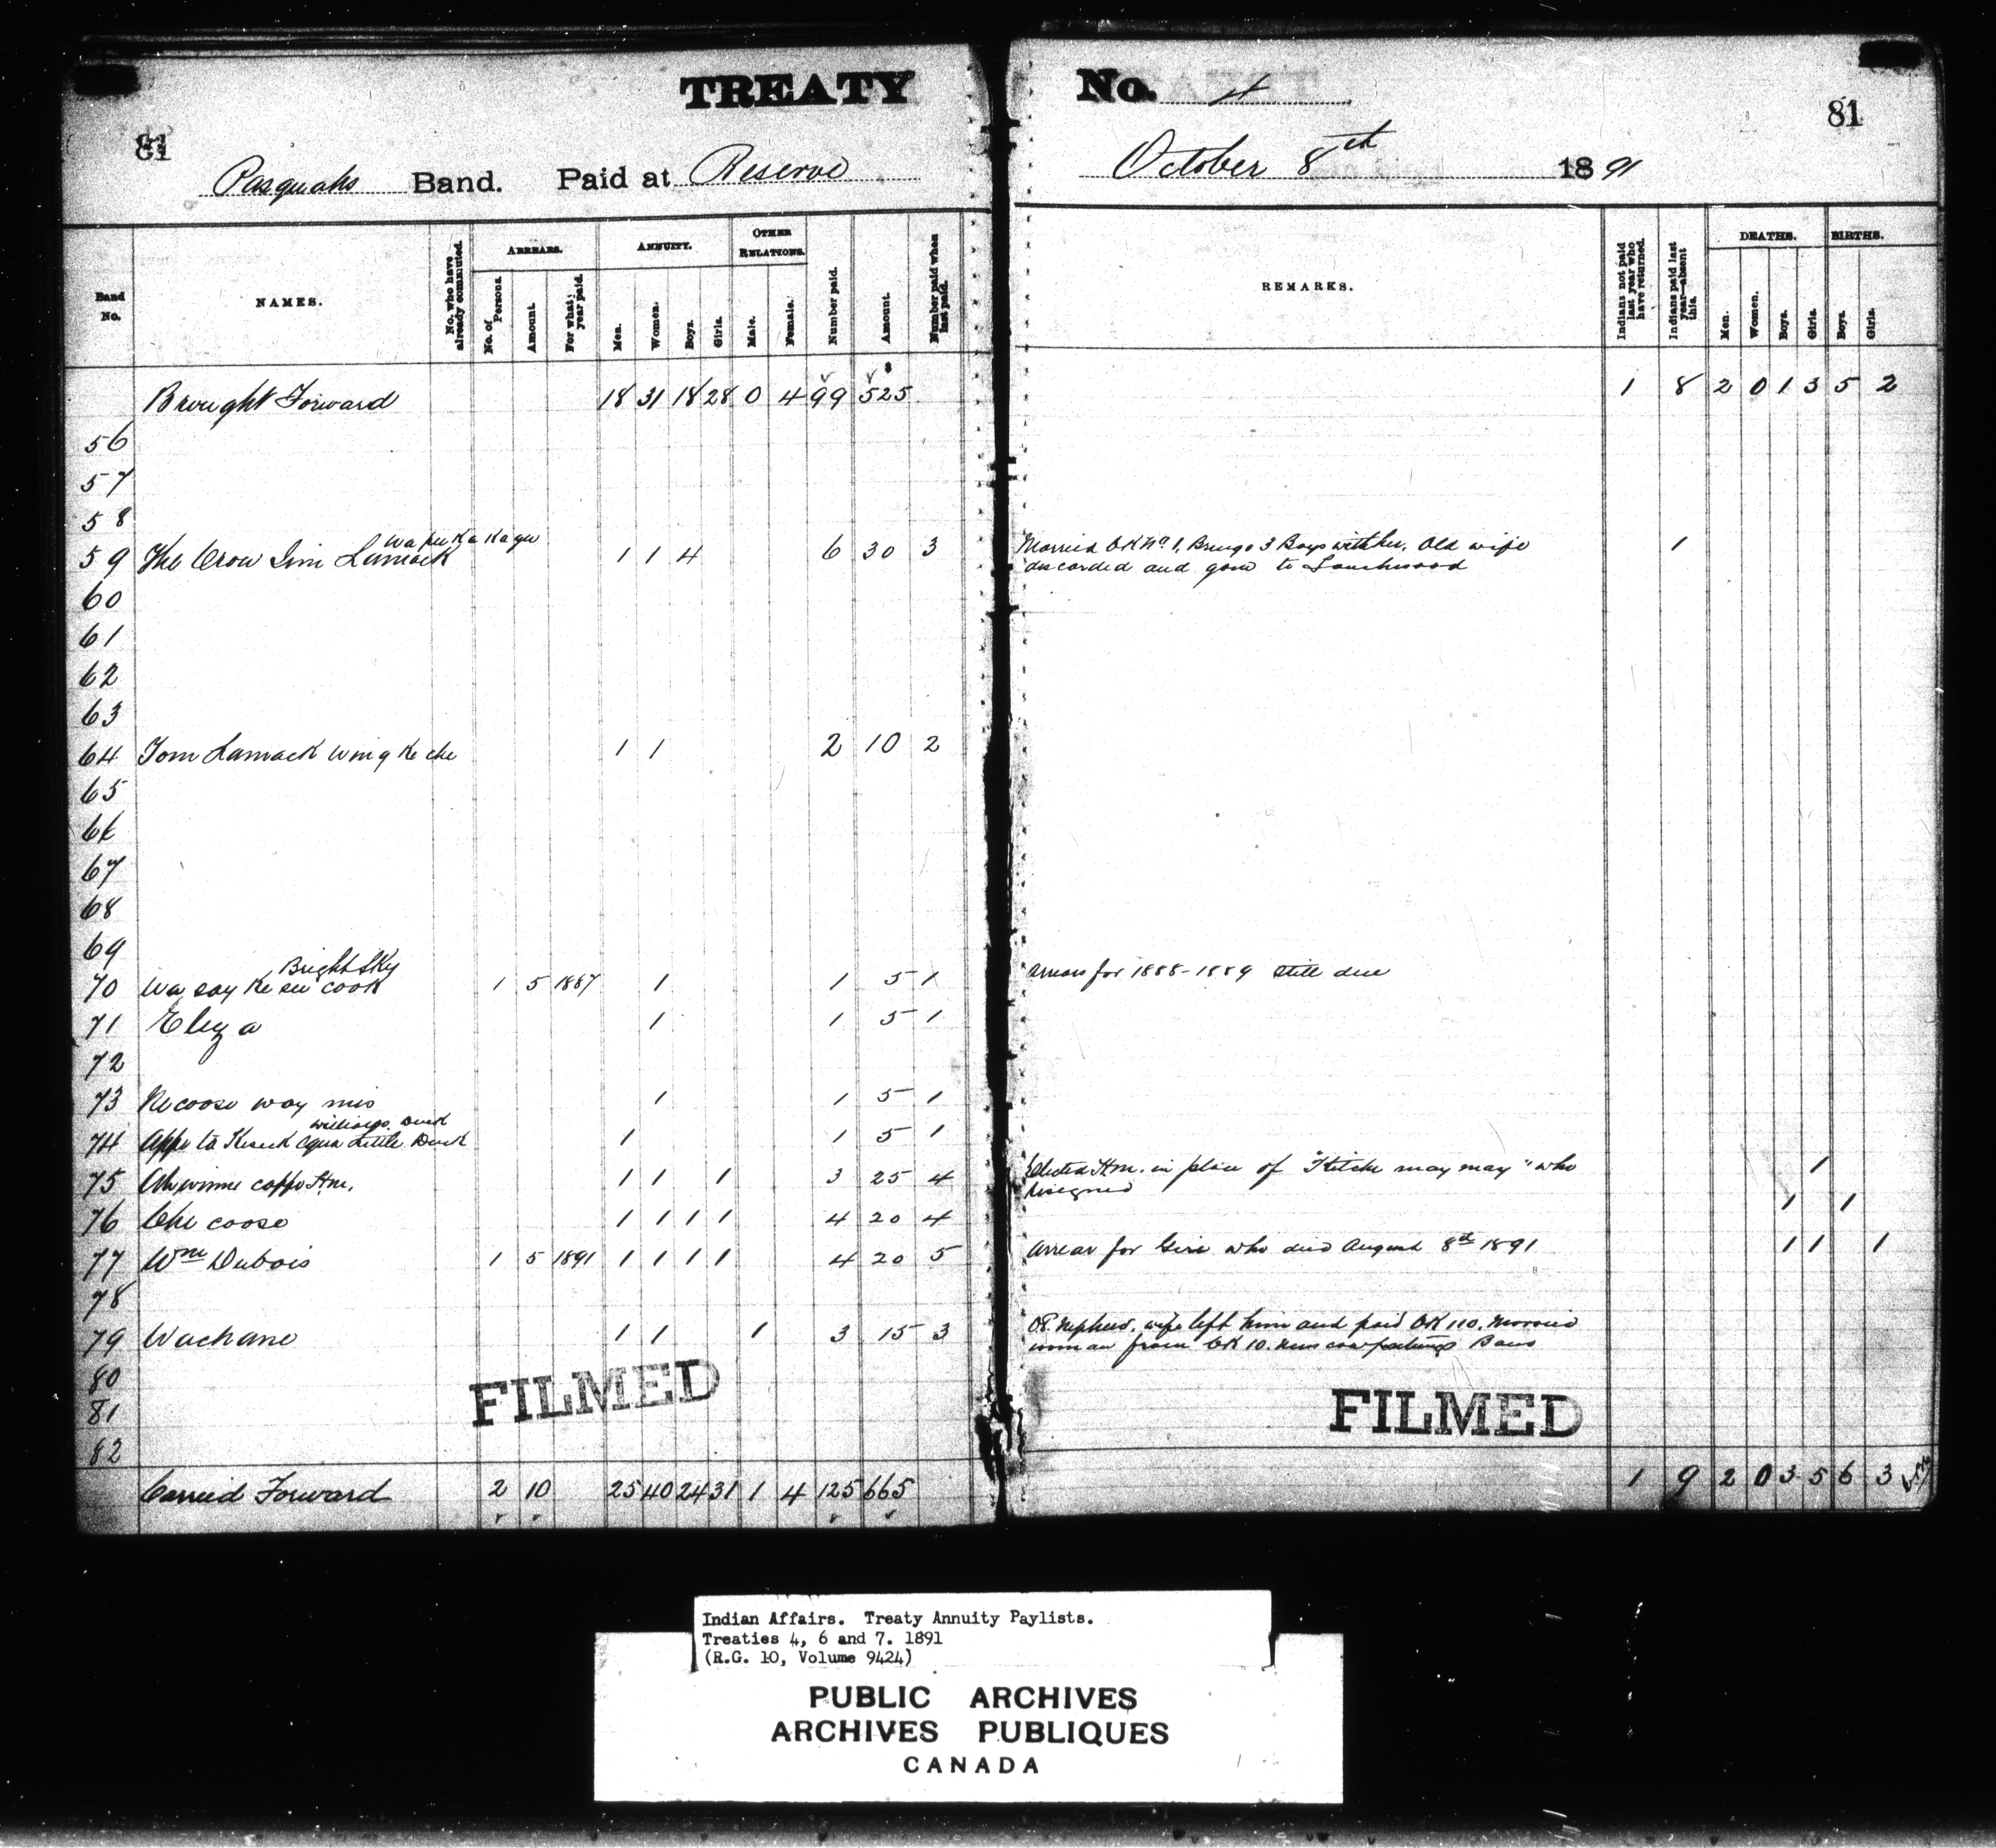 TREATY No. 4
81
81
Pasquahs Band. Paid at Reserve October 8th 1891
Band No.
NAMES.
No. who have already commuted.
ARREARS.
No. of Persons.
Amount.
For what year paid.
ANNUITY.
Men.
Women.
Boys.
Girls.
OTHER RELATIONS.
Male.
Female.
Number paid.
Amount.
Number paid when last paid.
REMARKS.
Indians not paid last year who have returned.
Indians paid last year—absent this.
DEATHS.
Men.
Women.
Boys.
Girls.
BIRTHS.
Boys.
Girls.
Brought Forward 18 31 18 28 0 4 99 $525 1 8 2 0 1 3 5 2
56
57
58
59 The Crow Jim Lamack 1 1 4 6 30 3 Married OK No 1, Brings 3 Boys with her. Old wife 1
discarded and gone to Touchwood
60
61
62
63
64 Tom Lamack wing ke che 1 1 2 10 2
65
66
67
68
69
Bright Sky
70 Wa say Ke sew cook 1 5 1887 1 1 5 1 Arrears for 1888-1889 still due
71 Eliza 1 1 5 1
72
73 Ne coose way mis 1 1 5 1
74 Little Duck 1 1 5 1
75 Ah winne cappo Hm. 1 1 1 3 25 4 Elected Hm. in place of "Kitche may may" who 1
resigned
76 Che coose 1 1 1 1 4 20 4 1 1
77 Wm Dubois 1 5 1891 1 1 1 1 4 20 5 Arrear for Girl who died August 8th 1891 1 1 1
78
79 Wachane 1 1 1 3 15 3 O.R. Nephew, wife left him and paid OK 110. Married
woman from OK 10.
80
81
82
FILMED
FILMED
Carried Forward 2 10 25 40 24 31 1 4 125 665 1 9 2 0 3 5 6 3
Indian Affairs. Treaty Annuity Paylists.
Treaties 4, 6 and 7. 1891
(R.G. 10, Volume 9424)
PUBLIC ARCHIVES
ARCHIVES PUBLIQUES
CANADA